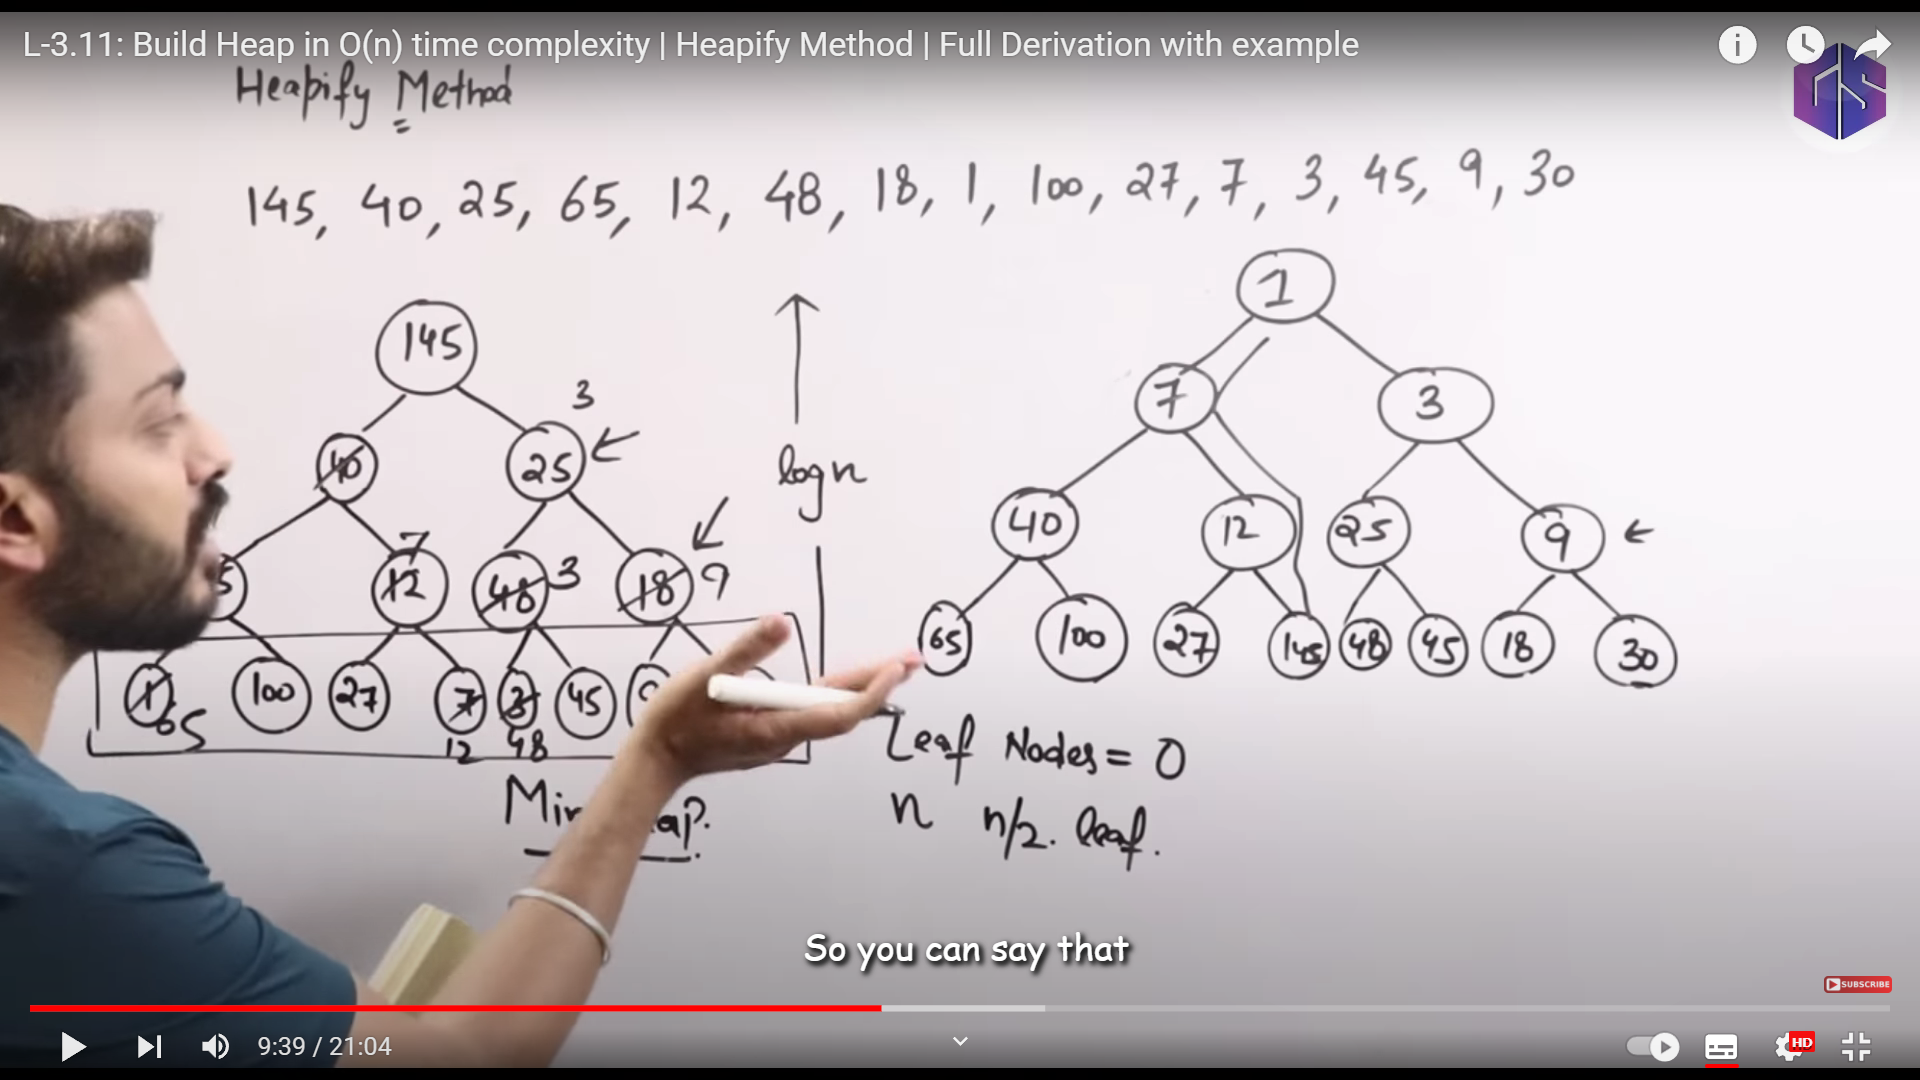 L-3.11: Build Heap in O(n) time complexity | Heapify Method | Full Derivation with example
Heapify Method
145, 40, 25, 65, 12, 48, 18, 1, 100, 27, 7, 3, 45, 9, 30
1
145
3
7 3
40 25
log n
40 12 25 9
7
12 48 3 18 9
65 100 27 145 48 45 18 30
1 65 100 27 7 3 45
12 48
Leaf Nodes = 0
n n/2. leaf.
So you can say that
SUBSCRIBE
9:39 / 21:04
HD